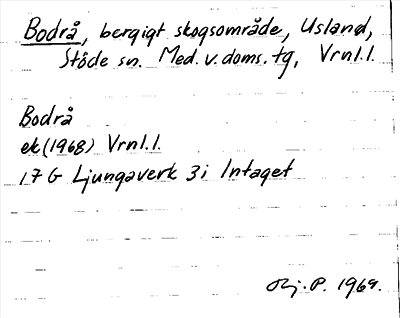 Bodrå, bergigt skogsområde, Usland,
Stöde sn. Med. v. doms. tg, Vrnl.l.
Bodrå
ek (1968) Vrnl.l.
17 G Ljungaverk 3 i Intaget
P. 1969.